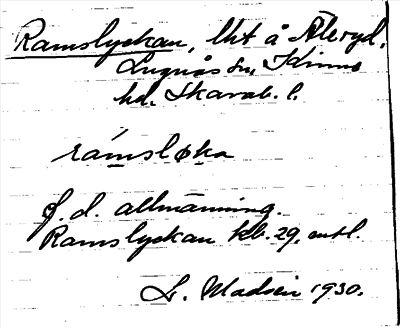 Ramslyckan, lht å Åleryd,
Lugnås sn, Kinne
hd. Skarab. l.
ramsløka
f. d. allmänning.
Ramslyckan kb. 29, mtl.
L. Madsen 1930.